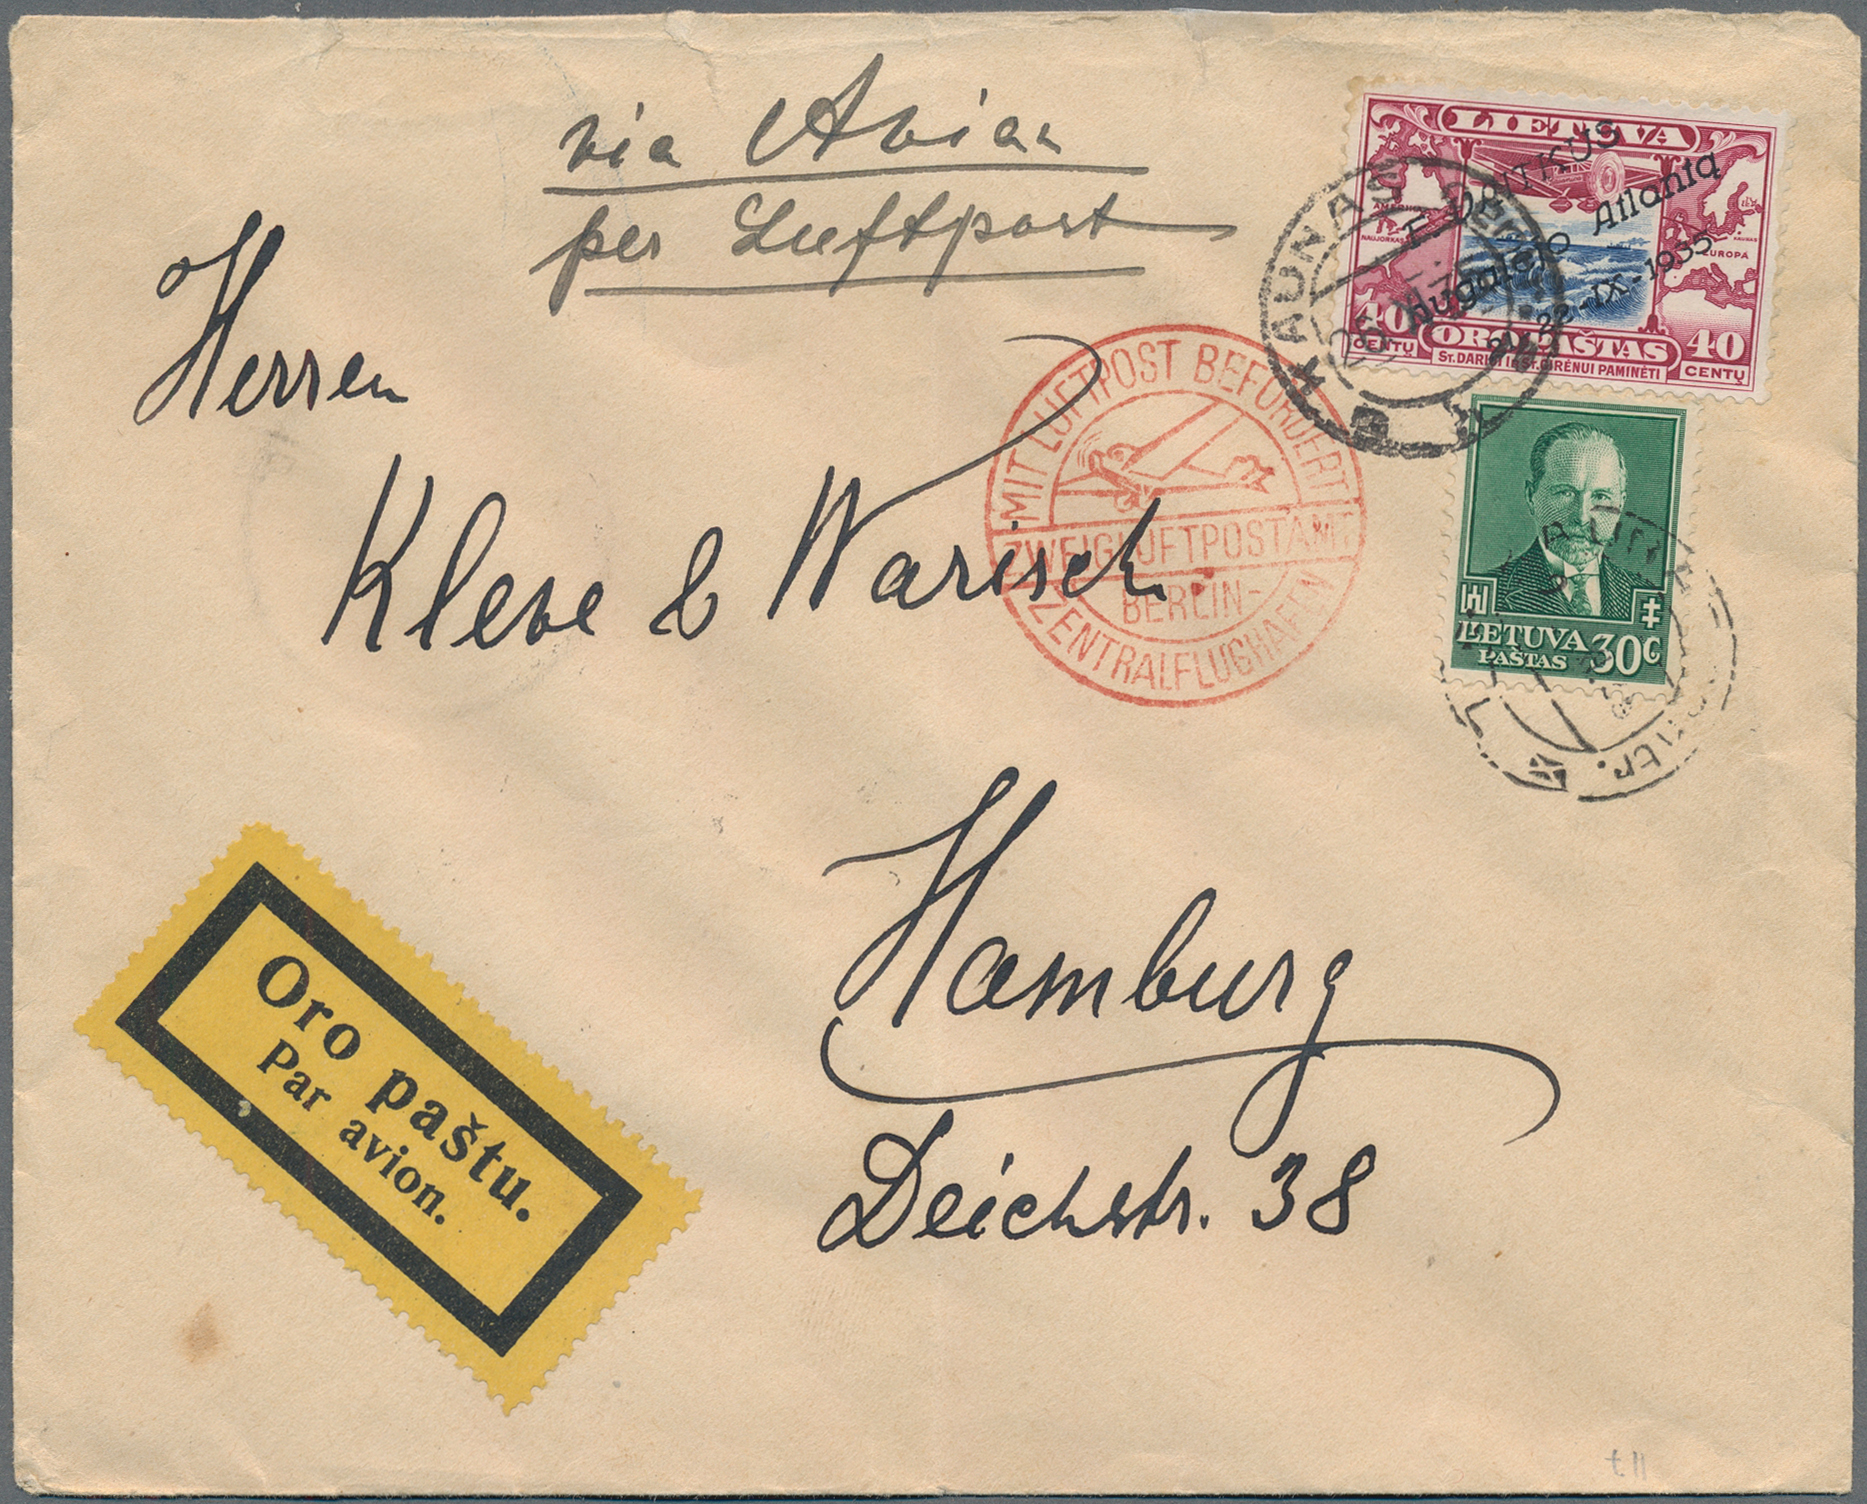 via Avion
per Luftpost
Herren
Kleve & Warisch.
Hamburg
Deichstr. 38
LIETUVA
F. VAITKUS
nugalėjo Atlantą
21-22-IX-1935
AMERIKA
NAUJORKAS
KAUNAS
EUROPA
40 CENTŲ
ORO PAŠTAS
40 CENTŲ
ST. DARIUI IR ST. GIRĖNUI PAMINĖTI
KAUNAS
LIETUVA
PAŠTAS 30C
MIT LUFTPOST BEFÖRDERT
ZWEIGLUFTPOSTAMT
BERLIN-
ZENTRALFLUGHAFEN
Oro paštu.
Par avion.